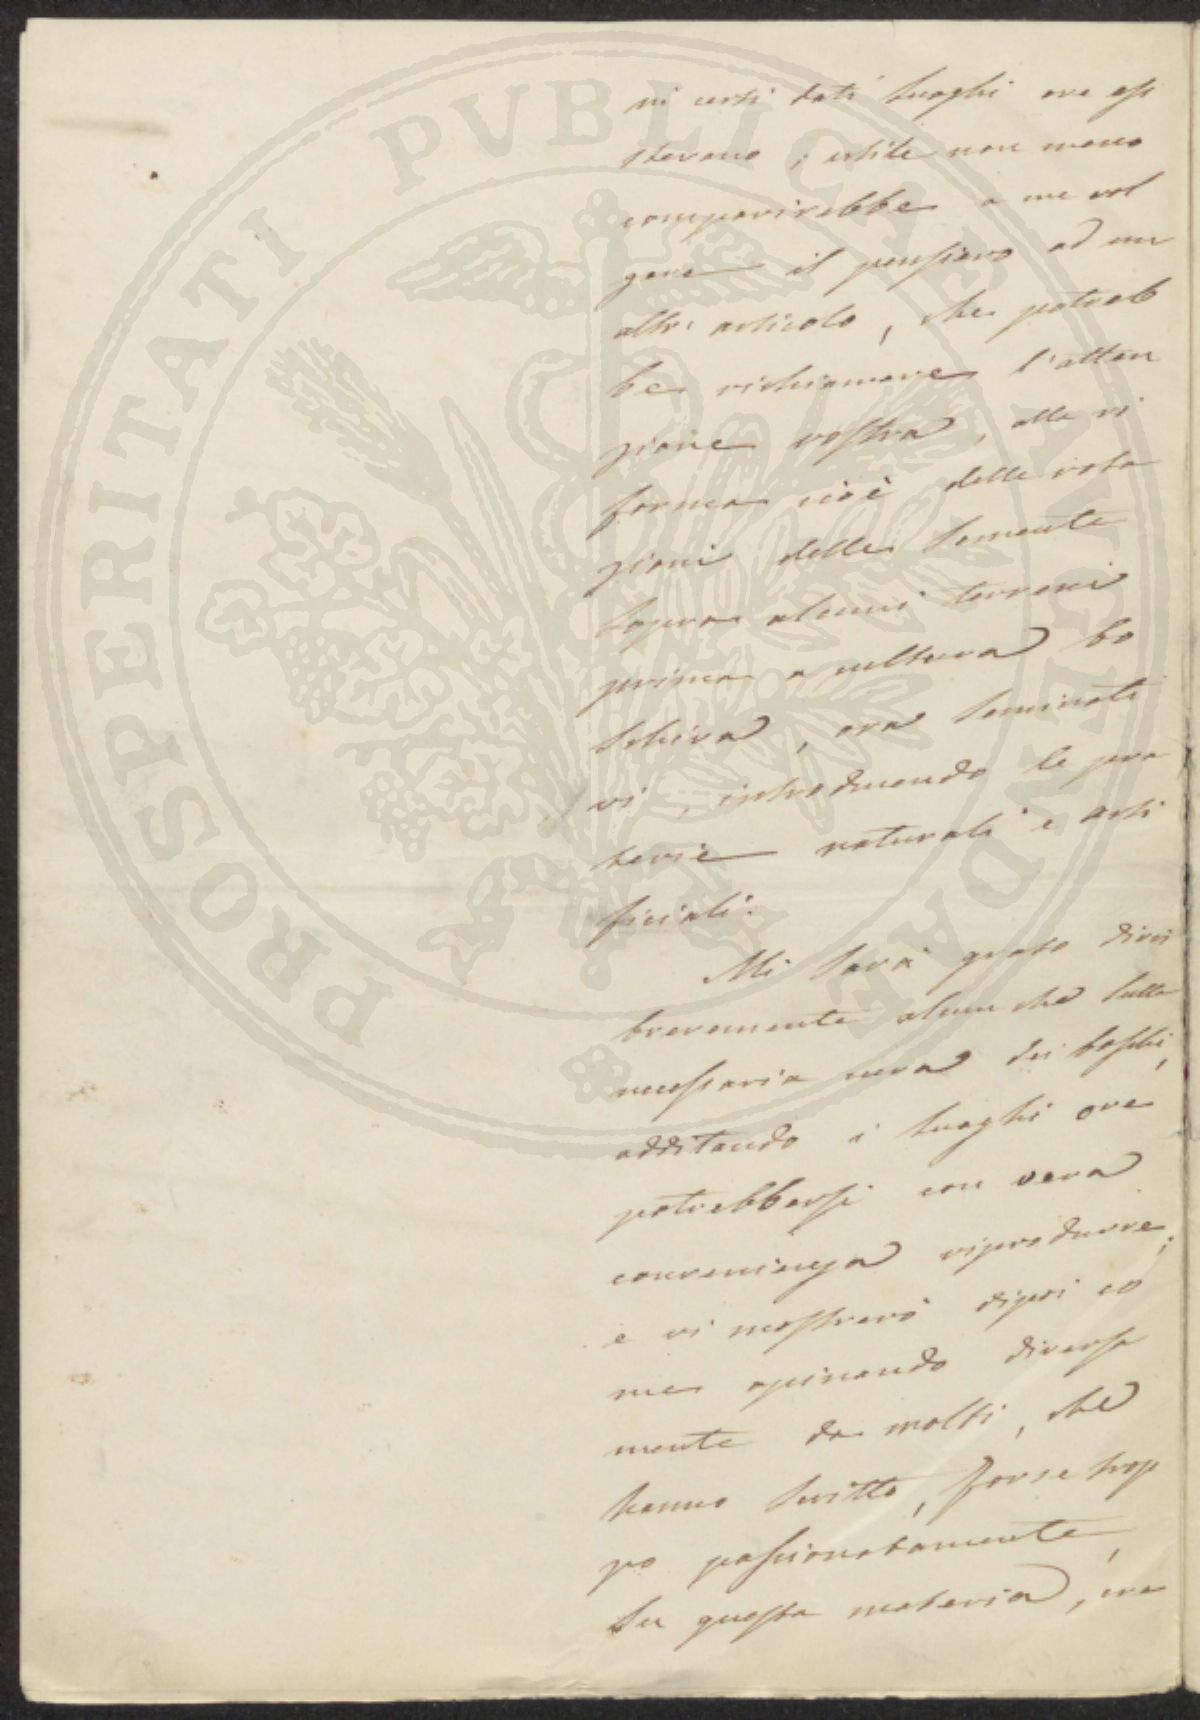 ni certi dati luoghi ove esi
stevano; utile non meno
comparirebbe a me vol
gere il pensiero ad un
altro articolo, che potreb
be richiamare l'atten
zione vostra, alla ri
forma cioè delle rota
zioni delle semente
sopra alcuni terreni
prima a cultura bo
schiva, ora seminati
vi, introducendo le pra
terie naturali e arti
ficiali.
Mi sarà grato dirvi
brevemente alcun chè sulla
necessaria cura dei boschi,
additando i luoghi ove
potrebbersi con vera
convenienza riprodurre;
e vi mostrerò dipoi co
me opinando diversa
mente da molti, che
hanno scritto, forse trop
po passionatamente,
su questa materia, cre
PROSPERITATI PVBLICAE AVGENDAE